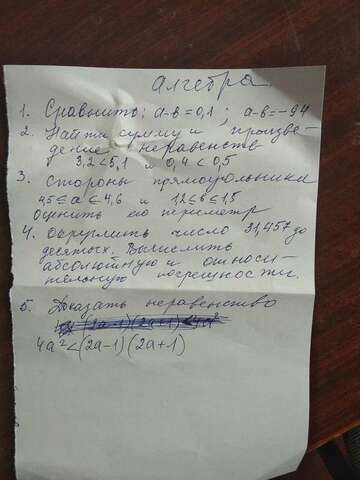 Алгебра
1. Сравнить: a-b=0,1; a-b=-94
2. Найти сумму и произве-
дение неравенств
3,2<5,1 и 0,4<0,5
3. Стороны прямоугольника
4,5≤a≤4,6 и 1,2≤b≤1,5
Оценить его периметр
4. Округлить число 31,457 до
десятых. Вычислить
абсолютную и относи-
тельную погрешности.
5. Доказать неравенство
(2a-1)(2a+1)<4a²
4a²<(2a-1)(2a+1)